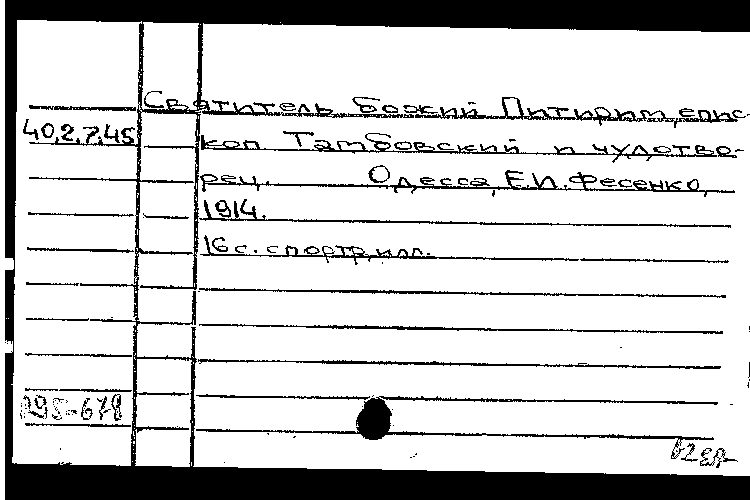 Святитель Божий Питирим, епис-
40.2.7.45 коп Тамбовский и чудотво-
рец. Одесса, Е.И. Фесенко,
1914.
16 с. с портр., илл.
295-678